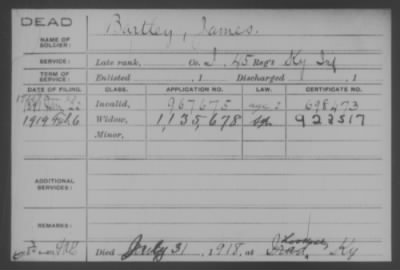 DEAD
NAME OF SOLDIER: Bartley, James.
SERVICE: Late rank, Co. I, 45 Reg't Ky Inf
TERM OF SERVICE: Enlisted , 1 Discharged , 1
DATE OF FILING. CLASS. APPLICATION NO. LAW. CERTIFICATE NO.
Invalid, 967675 698473
1919 Feb. 6 Widow, 1,135,678 922517
Minor,
ADDITIONAL SERVICES:
REMARKS:
Died July 31, 1918, at Ky